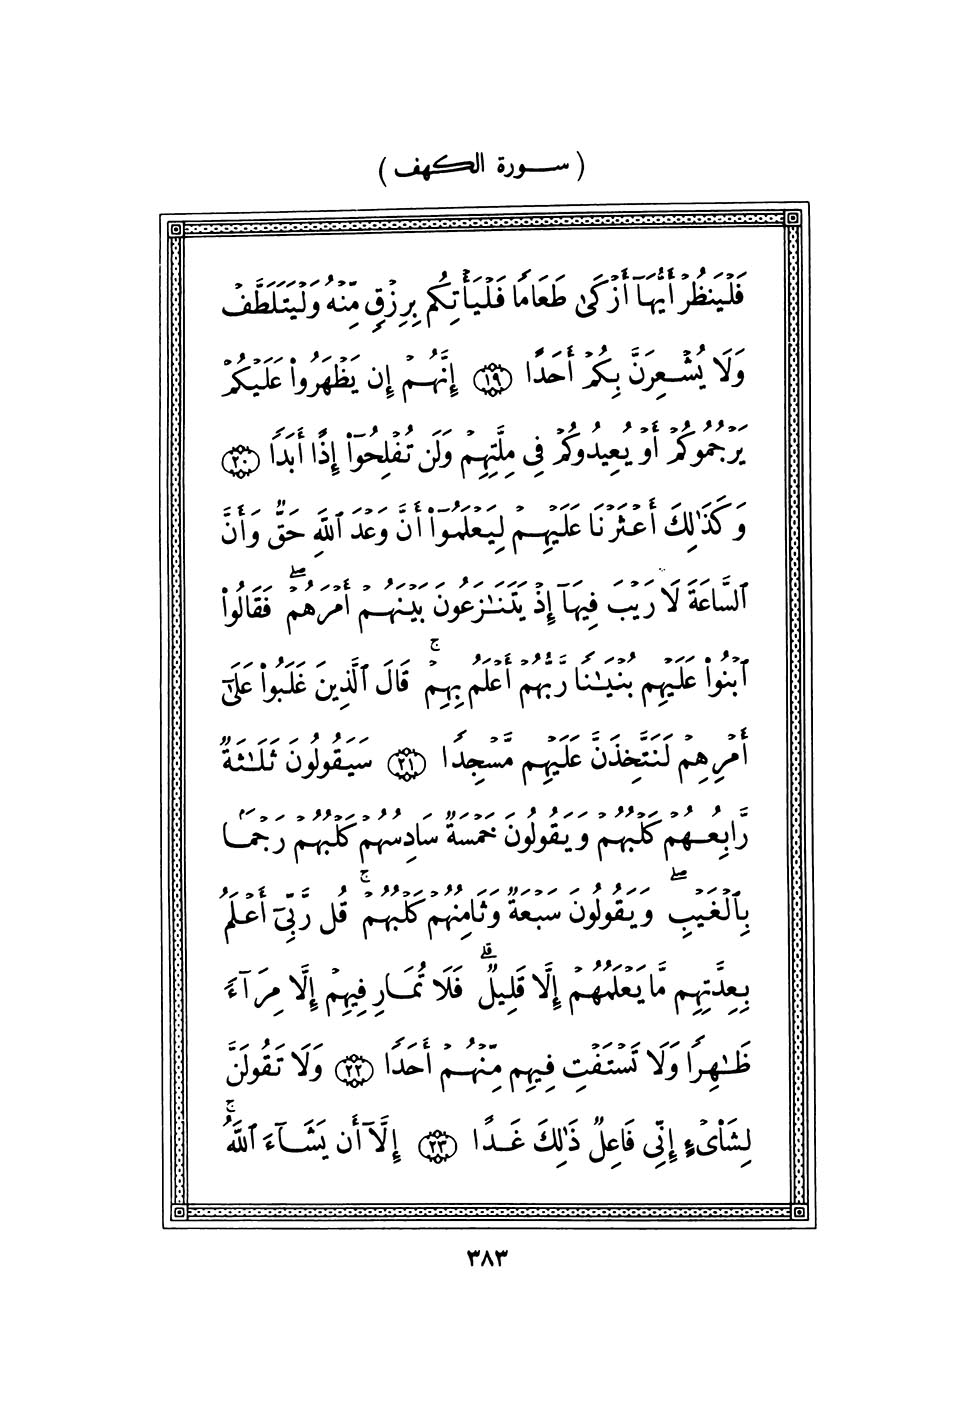 ( سورة الكهف )
فَلْيَنظُرْ أَيُّهَآ أَزْكَىٰ طَعَامًا فَلْيَأْتِكُم بِرِزْقٍ مِّنْهُ وَلْيَتَلَطَّفْ
وَلَا يُشْعِرَنَّ بِكُمْ أَحَدًا ﴿١٩﴾ إِنَّهُمْ إِن يَظْهَرُوا۟ عَلَيْكُمْ
يَرْجُمُوكُمْ أَوْ يُعِيدُوكُمْ فِى مِلَّتِهِمْ وَلَن تُفْلِحُوٓا۟ إِذًا أَبَدًا ﴿٢٠﴾
وَكَذَٰلِكَ أَعْثَرْنَا عَلَيْهِمْ لِيَعْلَمُوٓا۟ أَنَّ وَعْدَ ٱللَّهِ حَقٌّ وَأَنَّ
ٱلسَّاعَةَ لَا رَيْبَ فِيهَآ إِذْ يَتَنَٰزَعُونَ بَيْنَهُمْ أَمْرَهُمْ ۖ فَقَالُوا۟
ٱبْنُوا۟ عَلَيْهِم بُنْيَٰنًا رَّبُّهُمْ أَعْلَمُ بِهِمْ ۚ قَالَ ٱلَّذِينَ غَلَبُوا۟ عَلَىٰٓ
أَمْرِهِمْ لَنَتَّخِذَنَّ عَلَيْهِم مَّسْجِدًا ﴿٢١﴾ سَيَقُولُونَ ثَلَٰثَةٌ
رَّابِعُهُمْ كَلْبُهُمْ وَيَقُولُونَ خَمْسَةٌ سَادِسُهُمْ كَلْبُهُمْ رَجْمًۢا
بِٱلْغَيْبِ ۖ وَيَقُولُونَ سَبْعَةٌ وَثَامِنُهُمْ كَلْبُهُمْ ۚ قُل رَّبِّىٓ أَعْلَمُ
بِعِدَّتِهِم مَّا يَعْلَمُهُمْ إِلَّا قَلِيلٌ ۗ فَلَا تُمَارِ فِيهِمْ إِلَّا مِرَآءً
ظَٰهِرًا وَلَا تَسْتَفْتِ فِيهِم مِّنْهُمْ أَحَدًا ﴿٢٢﴾ وَلَا تَقُولَنَّ
لِشَا۟ىْءٍ إِنِّى فَاعِلٌ ذَٰلِكَ غَدًا ﴿٢٣﴾ إِلَّآ أَن يَشَآءَ ٱللَّهُ ۚ
٣٨٣